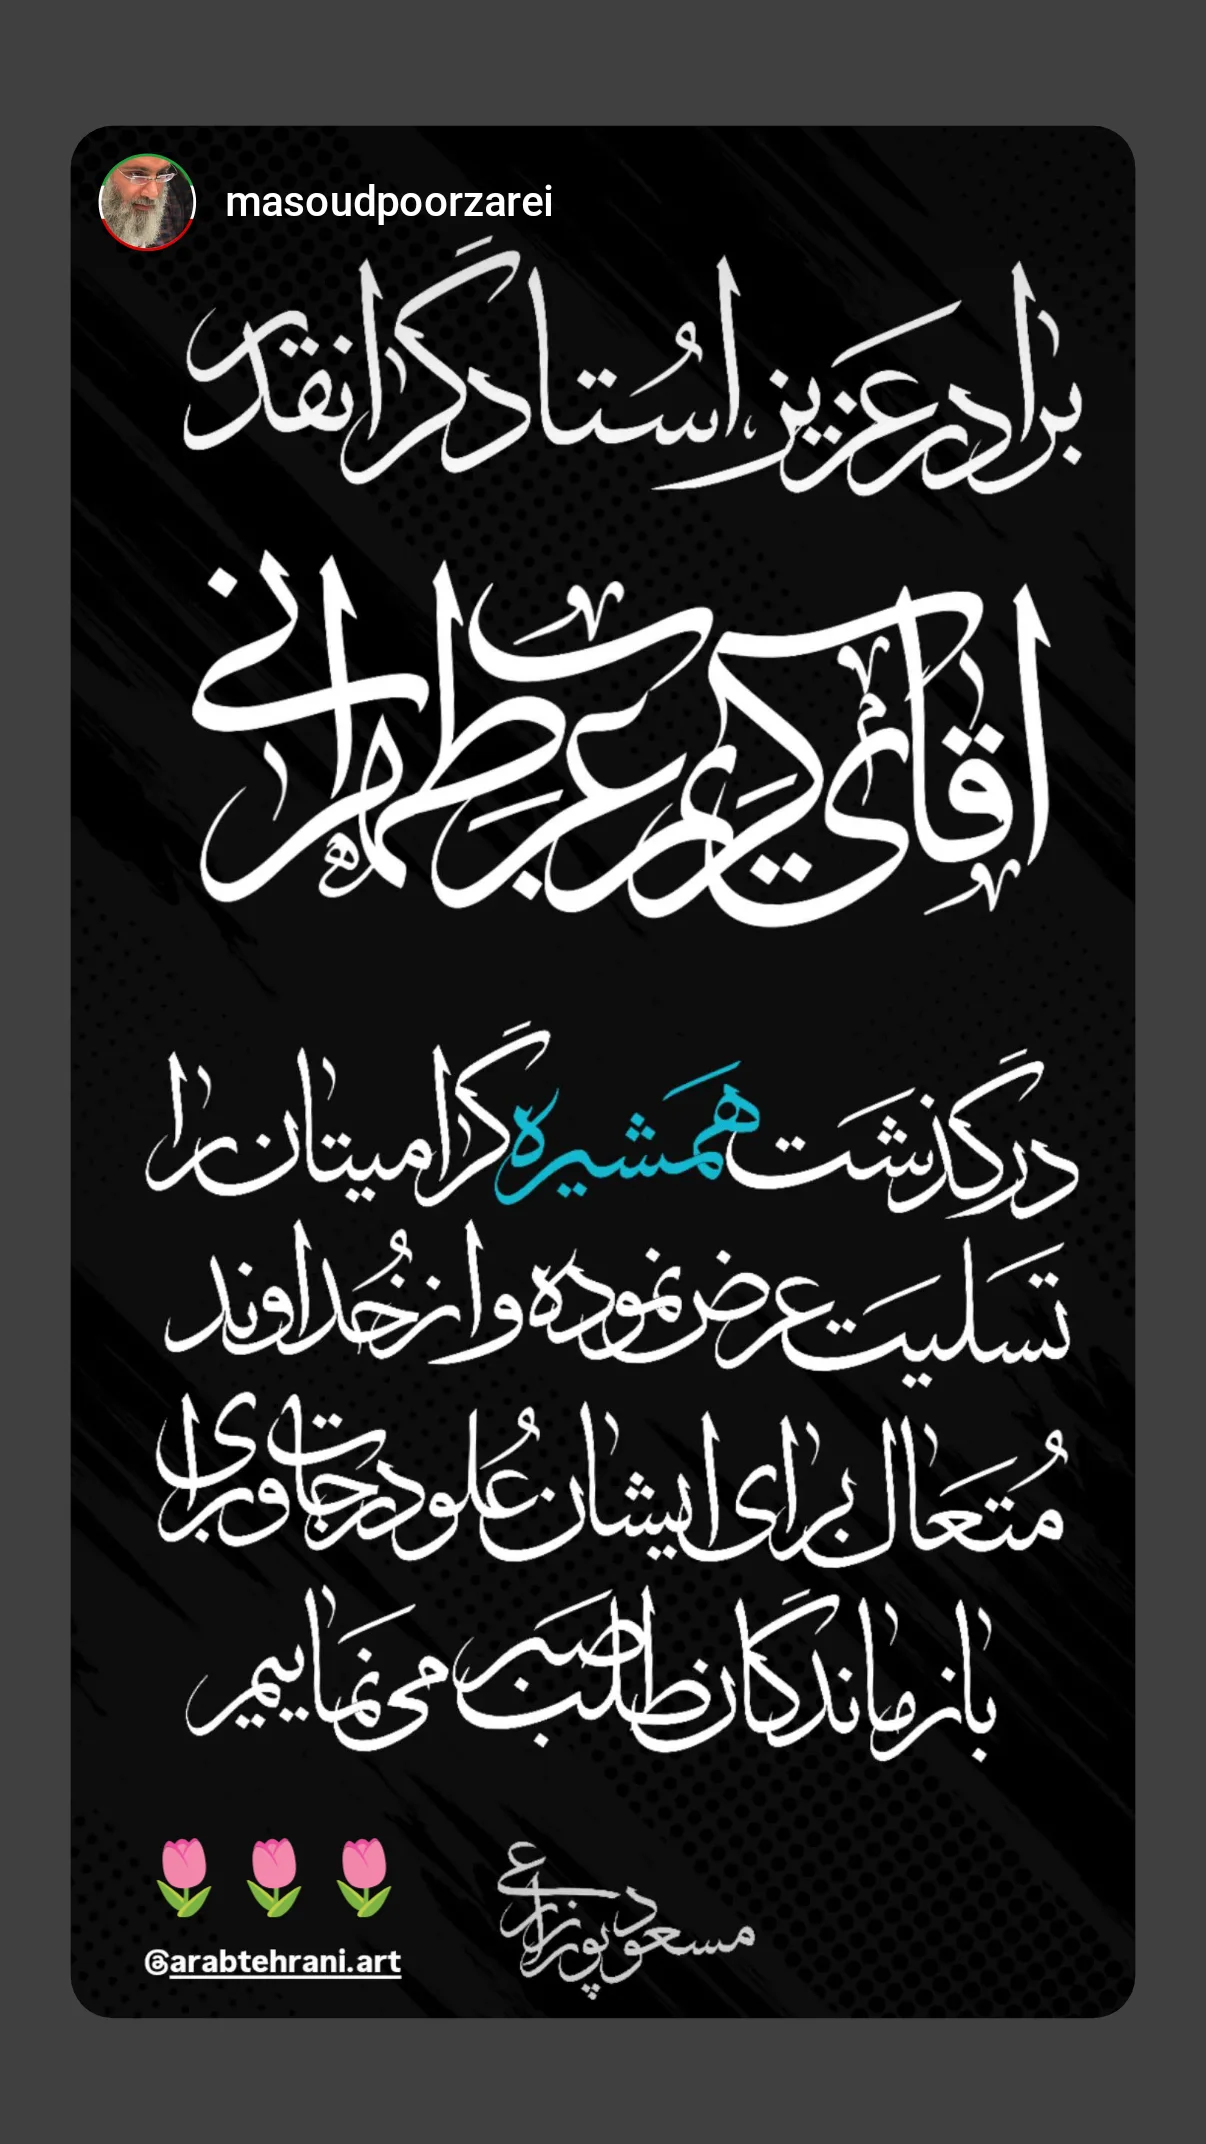 masoudpoorzarei
برادر عزیز اُستاد گرانقدر
آقای کریم عرب طهرانی
درگذشت همشیره گرامیتان را
تسلیت عرض نموده و از خُداوند
مُتَعال برای ایشان عُلو درجات و برای
بازماندگان طلب صبر می نماییم
مسعود پورزارعی
@arabtehrani.art